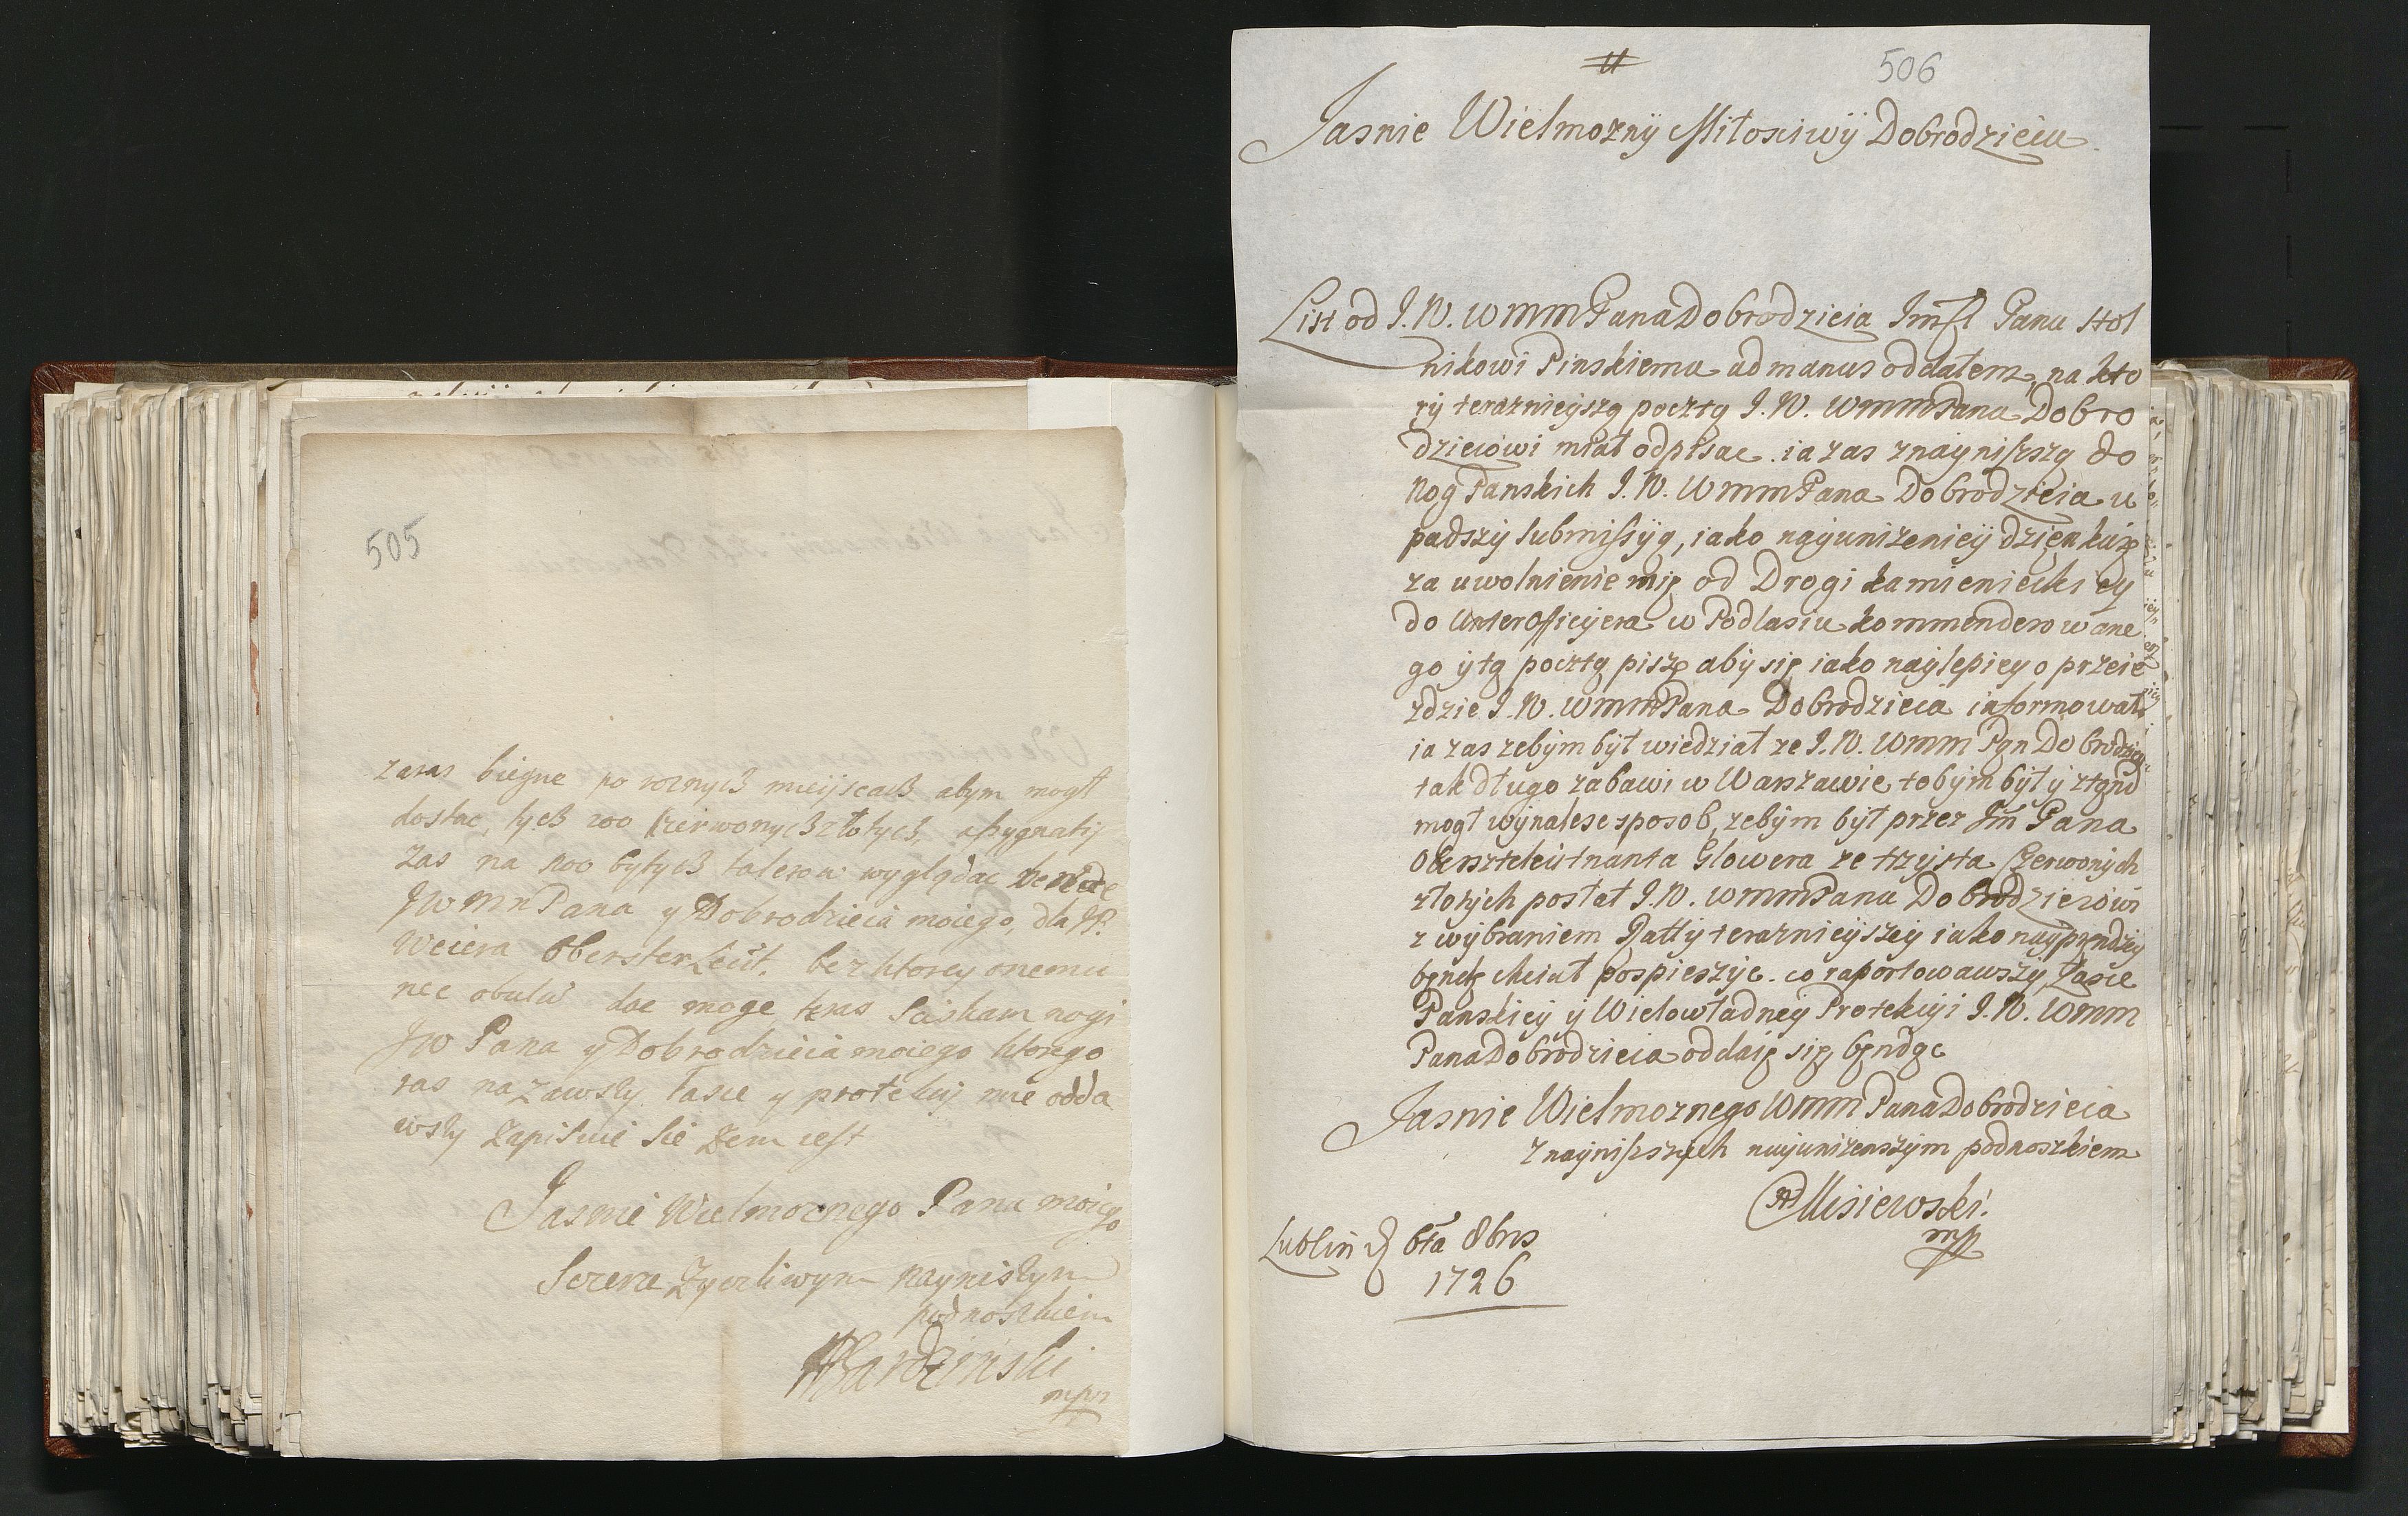 505
zaras biegne po roznych mieijscach abym mogł
dostac, tych 200 czerwonych złotych, assygnatij
zas na 100 bytych talerow wyglądac bende
JWMnPana y Dobrodzieia moiego, dla JP.
Weiera Obersterleüt. bez ktorey onemu
nec obulu dac moge teras sciskam nogi
JW Pana y Dobrodzieia moiego ktorego
ras nazawsty łasce y protekcij mie odda
wsty zapisuie sie zem iest
Jasnie Wielmoznego Pana moiego
Sczerze Zyczliwym naynistym
podnoszkiem
Bardzinski
mpp
506
Jasnie Wielmoznÿ Miłosciwÿ Dobrodzieiu
List od J.W. WMMPanaDobrodzieia Jmsci Panu Stol
nikowi Pinskiemu ad manus oddałem, na kto
rÿ teraznieÿszą pocztą J.W. WMMPanu Dobro
dzieiowi miał odpisac. ia zas znaÿniszszą do
Nog Panskich J.W. WMMPana Dobrodzieia u
padszÿ submissÿą, iako naÿunizenieÿ dzięnkuię
za uwolnienie mię od Drogi kamienieckieÿ
do Unterofficÿera w Podlasiu kommenderowane
go ÿ tą pocztą piszę abÿ się iako naÿlepieÿ o przeie
zdzie J.W. WMMPana Dobrodzieia informował
ia zas zebÿm bÿł wiedział ze J.W. WMM Pan Dobrodzieÿ
tak długo zabawi w Warszawie, tobÿm bÿł ÿ ztąnd
mogł wÿnalesc sposob, zebÿm bÿł przez Jm Pana
Obersztleitnanta Glowera ze trzÿsta Czerwonÿch
złotÿch posłał J.W. WMMPanu Dobrodzieiowi
z wÿbraniem Ratÿ teraznieÿszeÿ iako nayprendzey
bęndę chciał pospieszÿc. co raportowawszÿ, Łasce
Panskieÿ ÿ Wielowładneÿ Protekcÿi J.W. WMM
PanaDobrodzieia oddaię się, bęndąc
Jasnie Wielmoznego WMMPanaDobrodzieia
znaÿniszszÿch naÿunizenszÿm podnoszkiem
Misiewski
mpp
Lublin d 6ta 8bris
1726